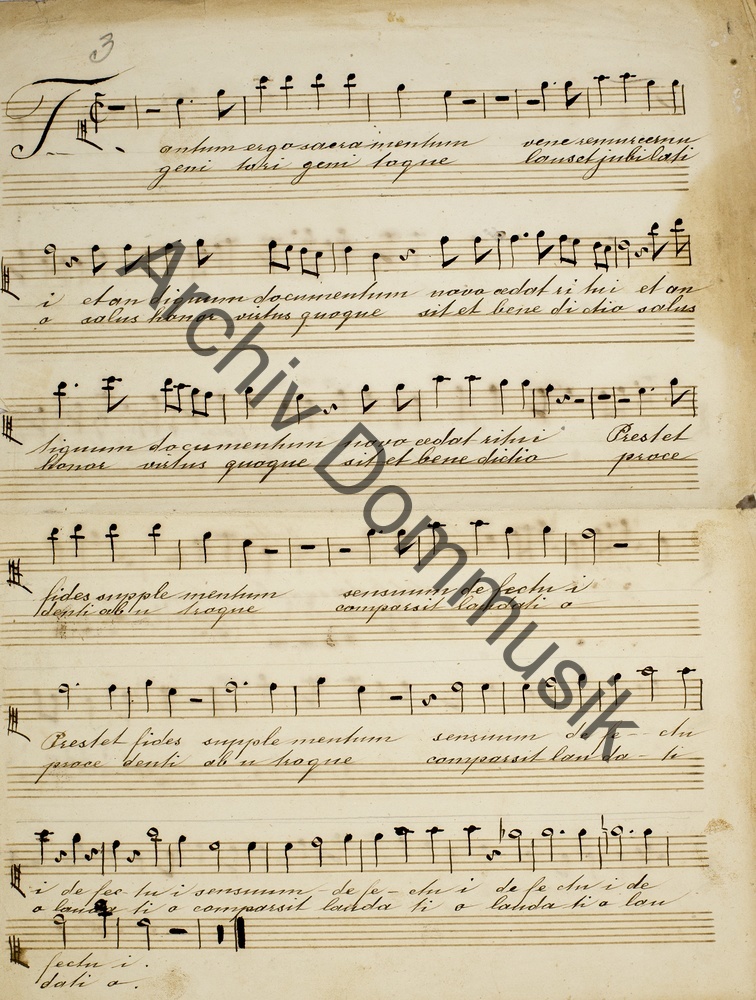 3
Tantum ergo sacra mentum vene remur cernu
geni tori geni toque laus et jubilati
i et an tiquum documentum novo cedat ri tui et an
o salus honor virtus quoque sit et bene di ctio salus
tiquum documentum novo cedat ritui Prestet
honor virtus quoque sit et bene dictio proce
fides supple mentum sensuum de fectu i
denti ab u troque comparsit laudati o
Prestet fides supple mentum sensuum de fe - ctu
proce denti ab u troque comparsit lau da - ti
i de fec tu i sensuum - de fe - ctu i de fe ctu i de
o lauda ti o comparsit lauda ti o lauda ti o lau
fectu i.
dati o.
Archiv Dommusik